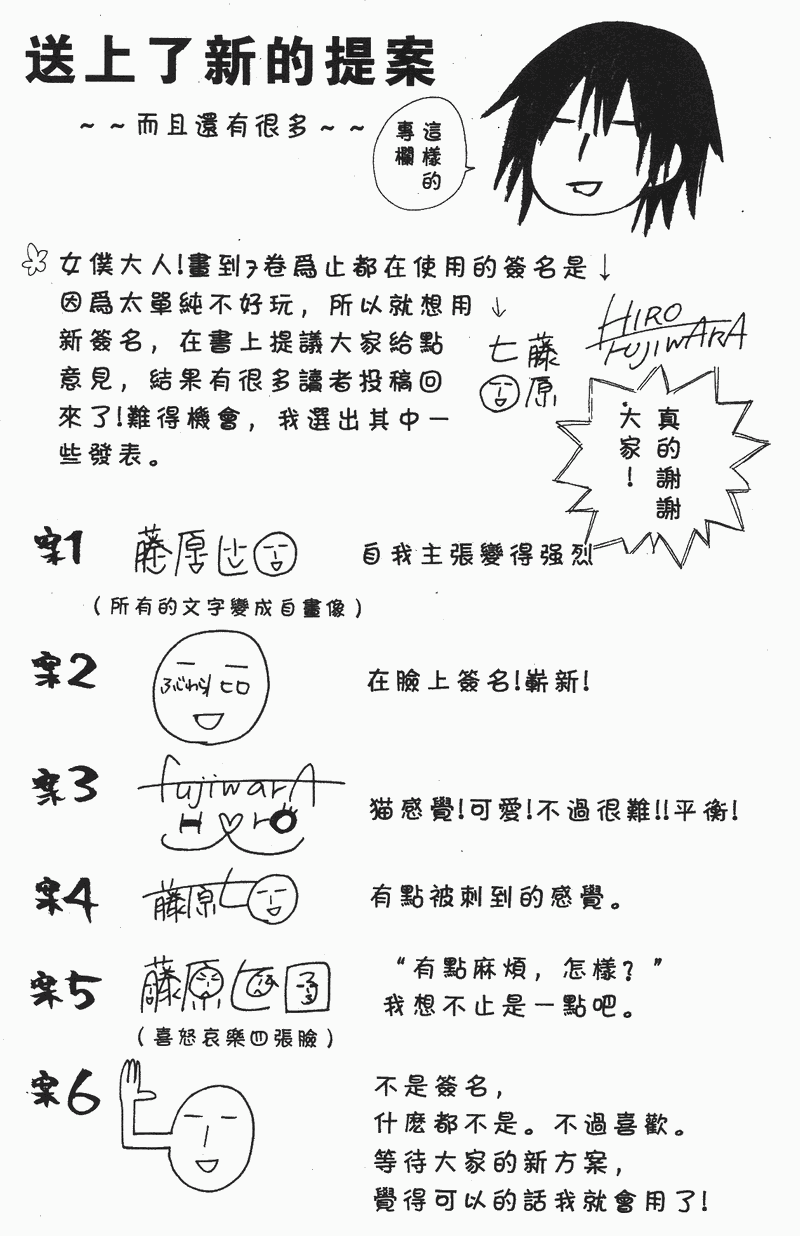 送上了新的提案
～～而且還有很多～～
這樣的
專欄
女僕大人!畫到7卷爲止都在使用的簽名是↓
因爲太單純不好玩，所以就想用↓
新簽名，在書上提議大家給點
意見，結果有很多讀者投稿回
來了!難得機會，我選出其中一
些發表。
藤
原
七
HIRO
FUJIWARA
真的謝謝
大家!
案1
藤原
自我主張變得强烈
(所有的文字變成自畫像)
案2
ふじわら ヒロ
在臉上簽名!嶄新!
案3
fujiwarA
Hiro
猫感覺!可愛!不過很難!!平衡!
案4
藤原ヒ
有點被刺到的感覺。
案5
藤原
“有點麻煩，怎樣?”
我想不止是一點吧。
(喜怒哀樂四張臉)
案6
不是簽名，
什麽都不是。不過喜歡。
等待大家的新方案，
覺得可以的話我就會用了!